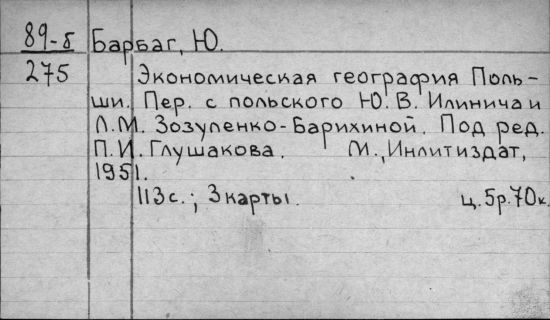 89-б Барбаг, Ю.
275 Экономическая география Поль-
ши. Пер. с польского Ю. В. Илинича и
Л.М. Зозуленко-Барихиной. Под ред.
П.И. Глушакова. М., Инлитиздат,
1951.
113с.; 3 карты. ц. 5р. 70к.